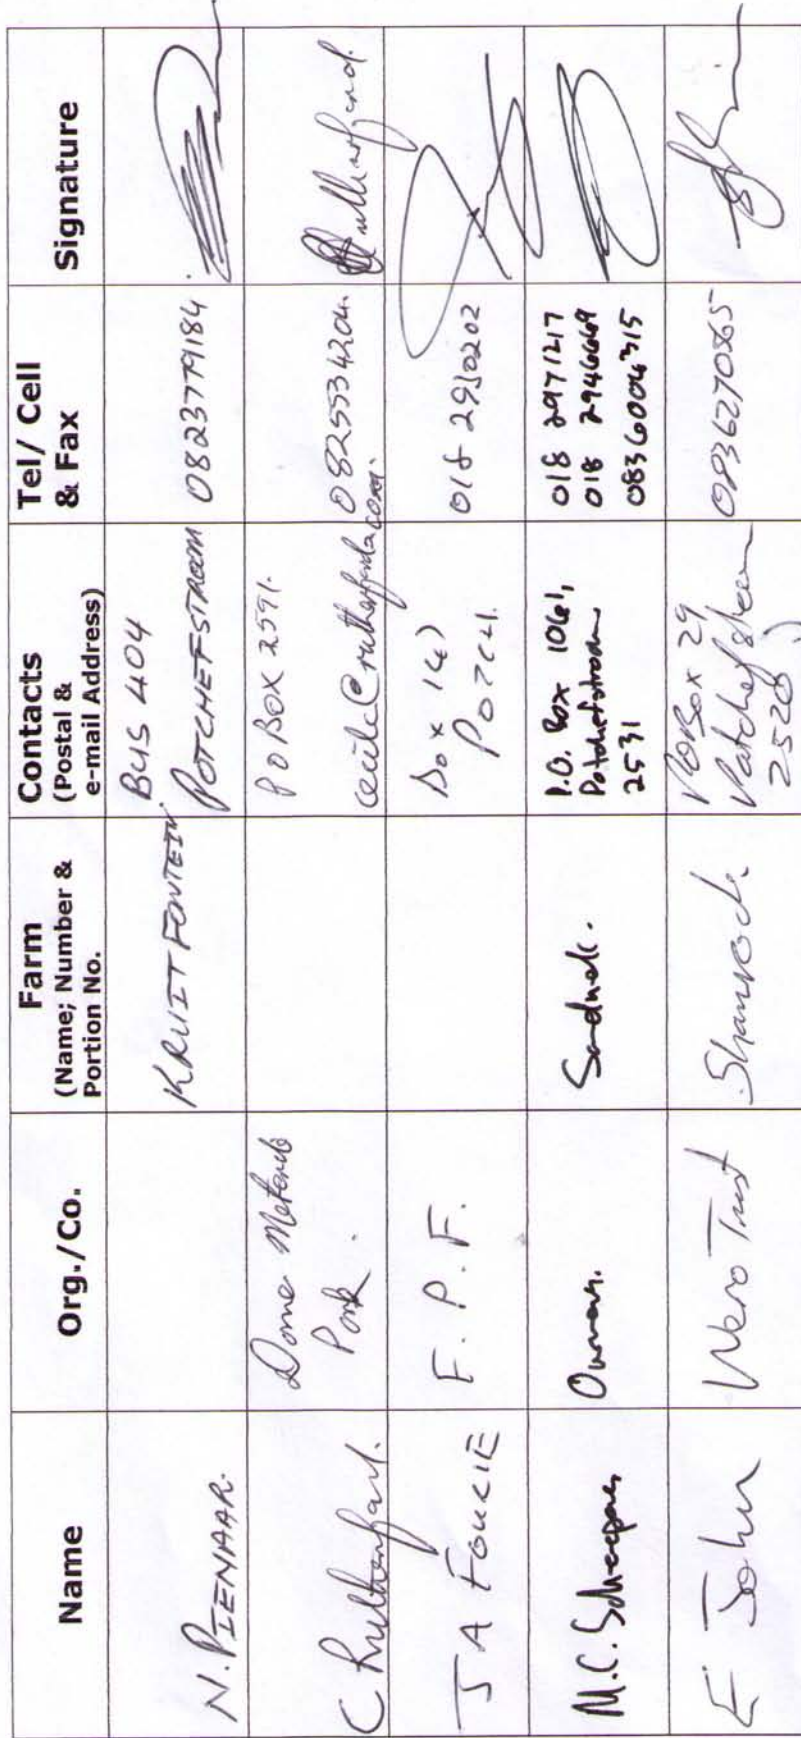 Name
Org./Co.
Farm
(Name; Number &
Portion No.
Contacts
(Postal &
e-mail Address)
Tel/ Cell
& Fax
Signature
N. PIENAAR.
KRUITFONTEIN
BUS 404
POTCHEFSTROOM
0823779184
C Rutherford.
Dome Meteorite
Park.
P O BOX 2591.
0825534204
JA FOURIE
F. P. F.
Box
POTCH.
018 2930202
M.C. Scheepers
Owner.
P.O. Box 1061,
Potchefstroom
2531
018 2971217
018 2946669
E. John
Wero Trust
Shamrock
PO Box 29
Potchefstroom
2520
0836270865